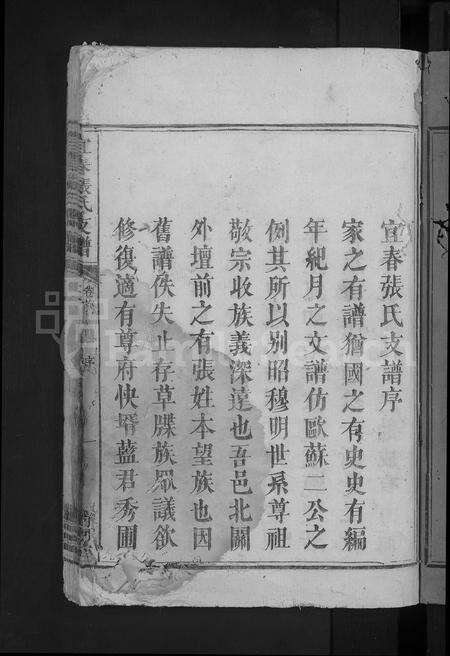 宜春張氏支譜序
家之有譜猶國之有史史有編
年紀月之文譜仿歐蘇二公之
例其所以別昭穆明世系尊祖
敬宗收族義深遠也吾邑北關
外壇前之有張姓本望族也因
舊譜佚失止存草牒族眾議欲
修復適有尊府快壻藍君秀圃
宜春張氏支譜
卷
序